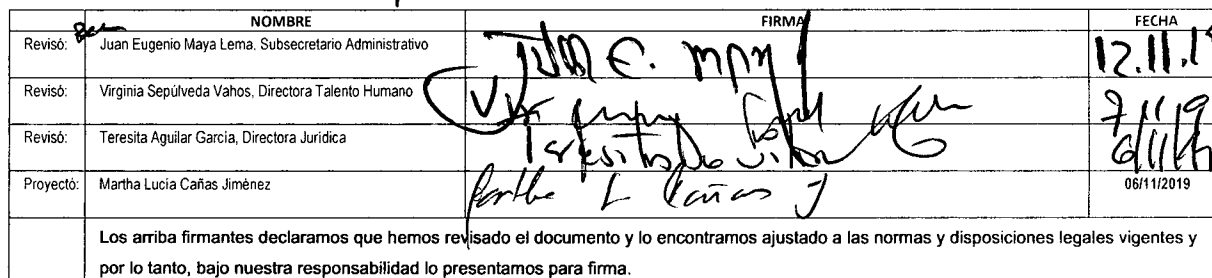 NOMBRE FIRMA FECHA
Revisó: Juan Eugenio Maya Lema. Subsecretario Administrativo JUAN E. 12.11.19
Revisó: Virginia Sepúlveda Vahos, Directora Talento Humano
Revisó: Teresita Aguilar García, Directora Jurídica Teresita
Proyectó: Martha Lucía Cañas Jiménez Martha L Cañas J 06/11/2019
Los arriba firmantes declaramos que hemos revisado el documento y lo encontramos ajustado a las normas y disposiciones legales vigentes y
por lo tanto, bajo nuestra responsabilidad lo presentamos para firma.